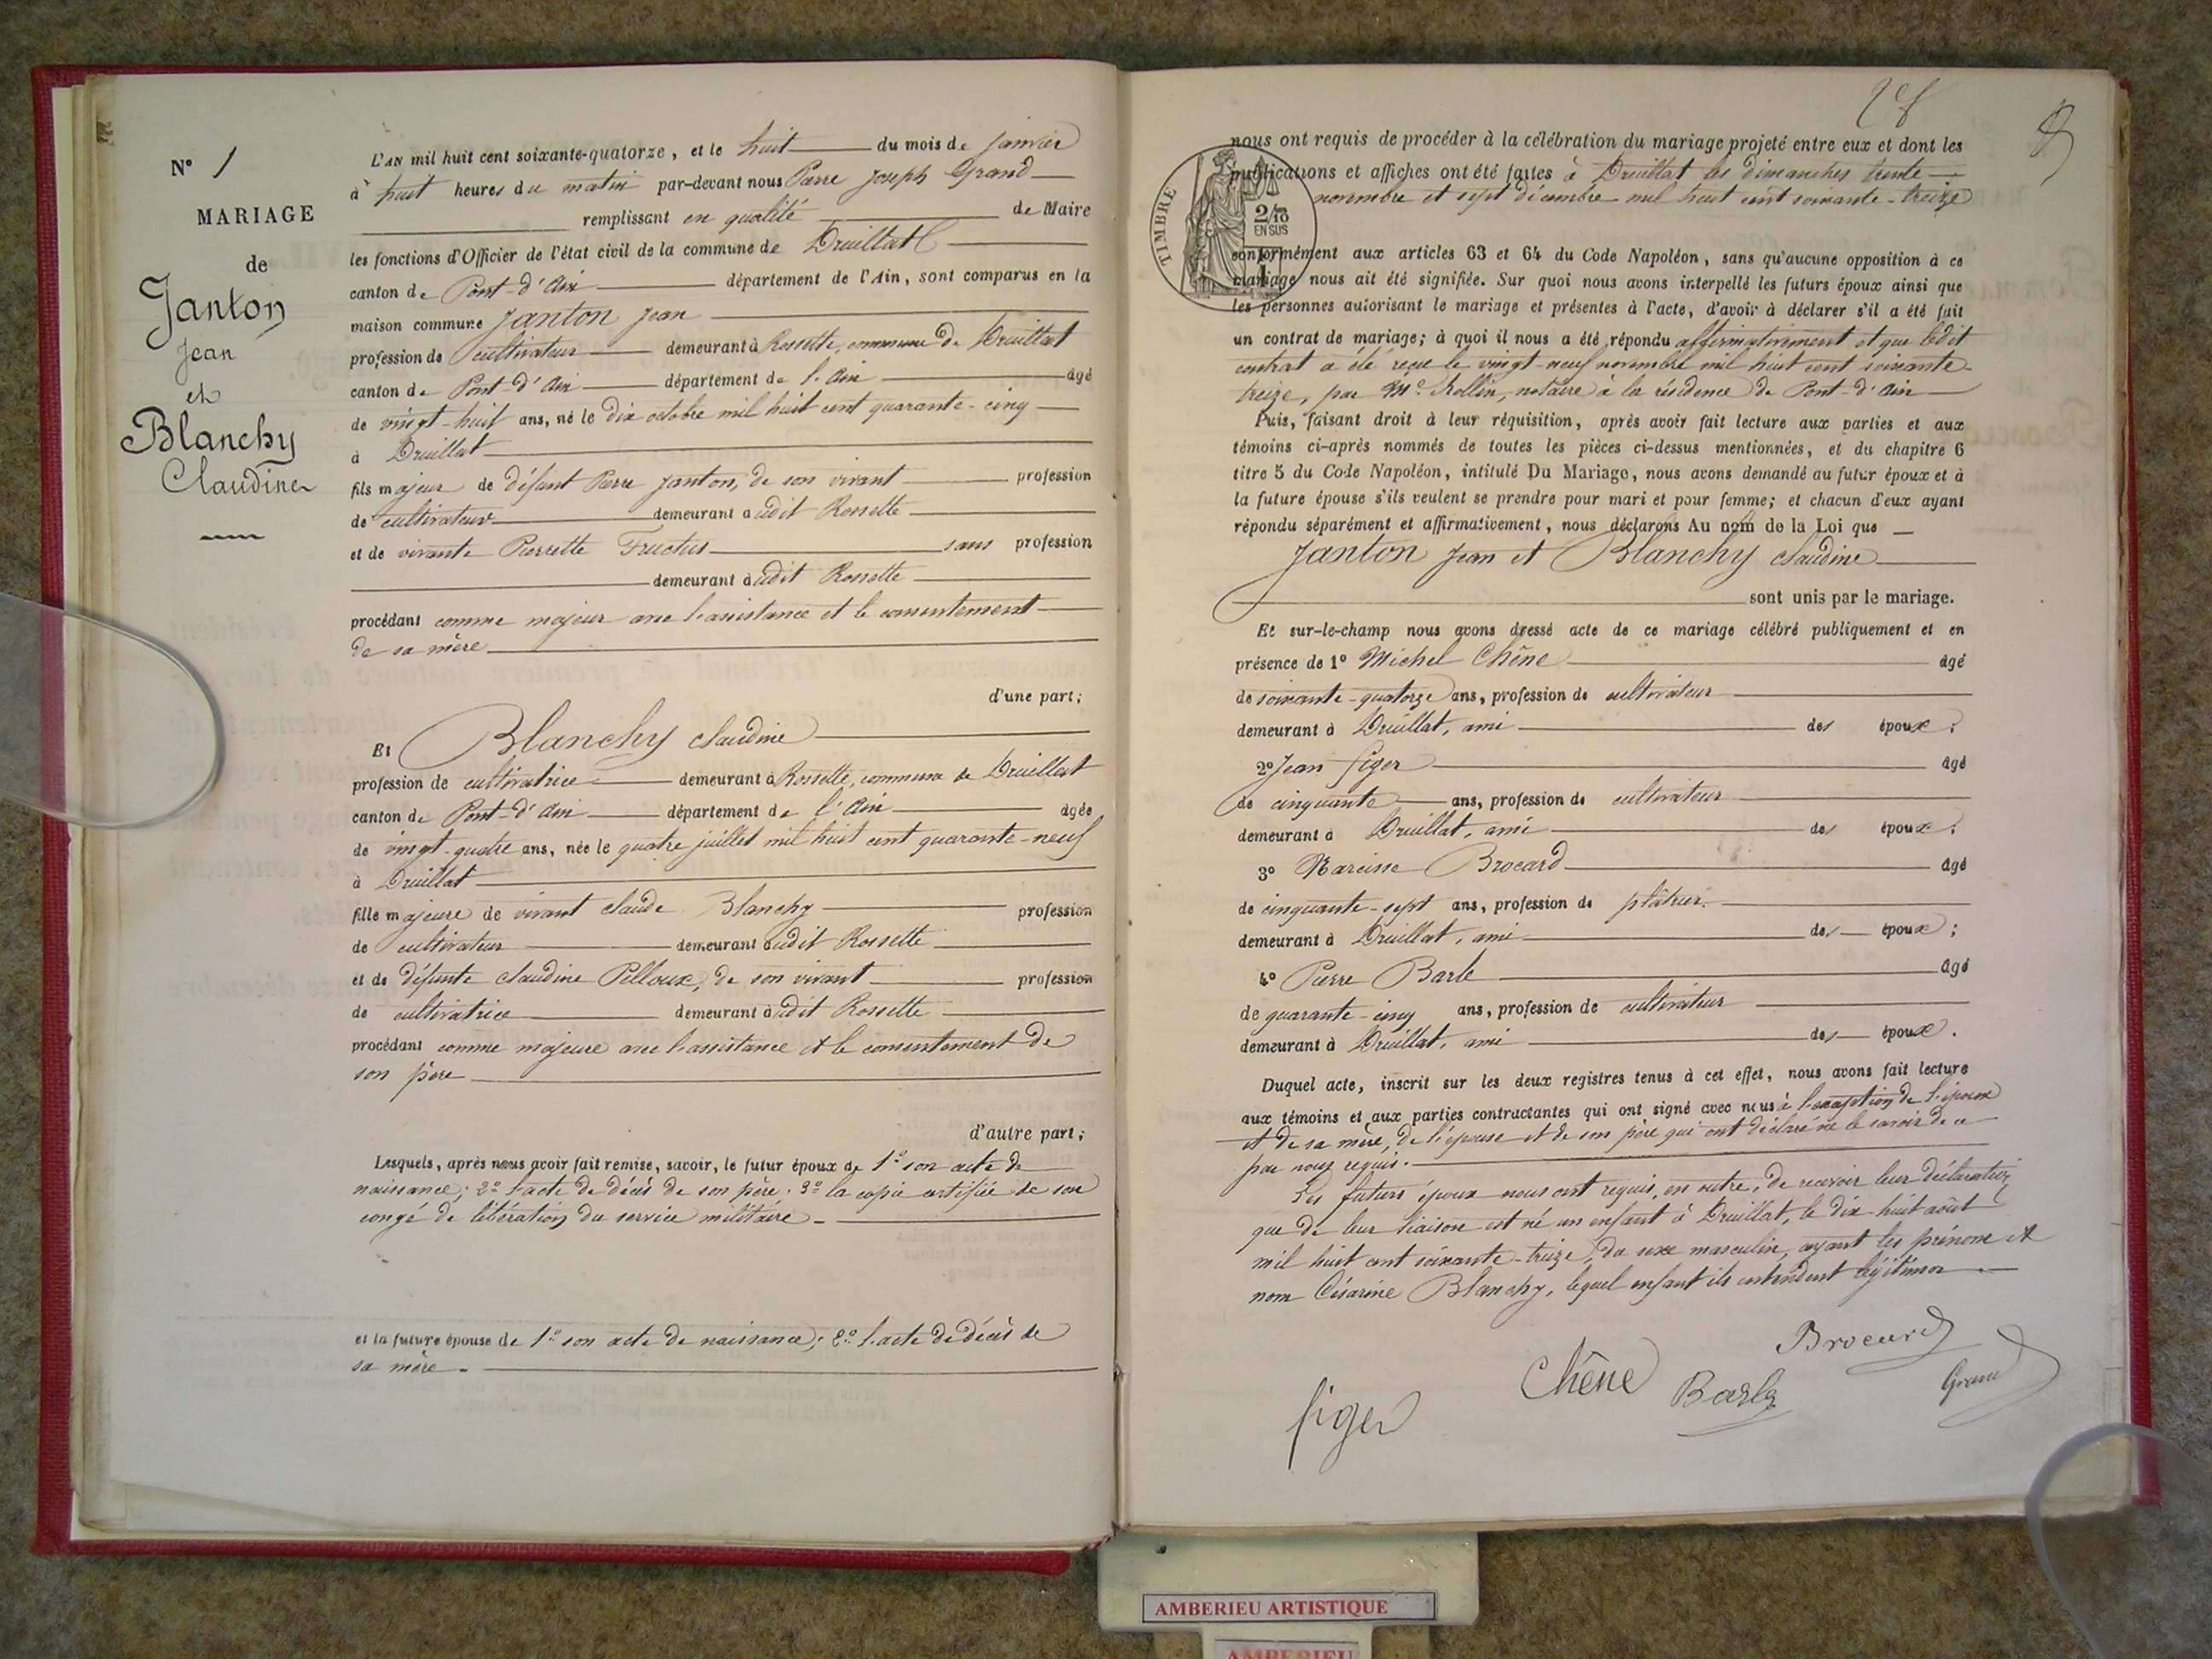 N° 1
MARIAGE
de
Janton
Jean
et
Blanchy
Claudine
L'AN mil huit cent soixante-quatorze, et le huit du mois de janvier
à huit heures du matin par-devant nous Pierre Joseph Grand
remplissant en qualité de Maire
les fonctions d'Officier de l'état civil de la commune de Druillat
canton de Pont-d'Ain département de l'Ain, sont comparus en la
maison commune Janton Jean
profession de cultivateur demeurant à Rossette, commune de Druillat
canton de Pont-d'Ain département de l'Ain âgé
de vingt-huit ans, né le dix octobre mil huit cent quarante-cinq
à Druillat
fils majeur de défunt Pierre Janton, de son vivant profession
de cultivateur demeurant audit Rossette
et de vivante Pierrette Fructus sans profession
demeurant audit Rossette
procédant comme majeur avec l'assistance et le consentement
de sa mère
d'une part;
Et Blanchy Claudine
profession de cultivatrice demeurant à Rossette, commune de Druillat
canton de Pont-d'Ain département de l'Ain âgée
de vingt-quatre ans, née le quatre juillet mil huit cent quarante-neuf
à Druillat
fille majeure de vivant Claude Blanchy profession
de cultivateur demeurant audit Rossette
et de défunte Claudine Pelloux, de son vivant profession
de cultivatrice demeurant audit Rossette
procédant comme majeure avec l'assistance et le consentement de
son père
d'autre part;
Lesquels, après nous avoir fait remise, savoir, le futur époux de 1° son acte de
naissance; 2° l'acte de décès de son père; 3° la copie certifiée de son
congé de libération du service militaire.
et la future épouse de 1° son acte de naissance; 2° l'acte de décès de
sa mère.
nous ont requis de procéder à la célébration du mariage projeté entre eux et dont les
publications et affiches ont été faites à Druillat les dimanches trente
novembre et sept décembre mil huit cent soixante-treize
TIMBRE
2/10
EN SUS
conformément aux articles 63 et 64 du Code Napoléon, sans qu'aucune opposition à ce
mariage nous ait été signifiée. Sur quoi nous avons interpellé les futurs époux ainsi que
les personnes autorisant le mariage et présentes à l'acte, d'avoir à déclarer s'il a été fait
un contrat de mariage; à quoi il nous a été répondu affirmativement et que ledit
contrat a été reçu le vingt-neuf novembre mil huit cent soixante-
treize, par Me Rollin, notaire à la résidence de Pont-d'Ain
Puis, faisant droit à leur réquisition, après avoir fait lecture aux parties et aux
témoins ci-après nommés de toutes les pièces ci-dessus mentionnées, et du chapitre 6
titre 5 du Code Napoléon, intitulé Du Mariage, nous avons demandé au futur époux et à
la future épouse s'ils veulent se prendre pour mari et pour femme; et chacun d'eux ayant
répondu séparément et affirmativement, nous déclarons Au nom de la Loi que
Janton Jean et Blanchy Claudine
sont unis par le mariage.
Et sur-le-champ nous avons dressé acte de ce mariage célébré publiquement et en
présence de 1° Michel Chêne âgé
de soixante-quatorze ans, profession de cultivateur
demeurant à Druillat, ami des époux;
2° Jean Figer âgé
de cinquante ans, profession de cultivateur
demeurant à Druillat, ami des époux;
3° Narcisse Brocard âgé
de cinquante-sept ans, profession de plâtrier
demeurant à Druillat, ami des époux;
4° Pierre Barle âgé
de quarante-cinq ans, profession de cultivateur
demeurant à Druillat, ami des époux.
Duquel acte, inscrit sur les deux registres tenus à cet effet, nous avons fait lecture
aux témoins et aux parties contractantes qui ont signé avec nous à l'exception de l'époux
et de sa mère, de l'épouse et de son père qui ont déclaré ne le savoir de ce
par nous requis.
Les futurs époux nous ont requis, en outre, de recevoir leur déclaration
que de leur liaison est né un enfant à Druillat, le dix-huit août
mil huit cent soixante-treize, du sexe masculin, ayant les prénom et
nom Césarine Blanchy, lequel enfant ils entendent légitimer
Brocard
Chêne
Barle
Grand
figer
AMBERIEU ARTISTIQUE
AMBERIEU